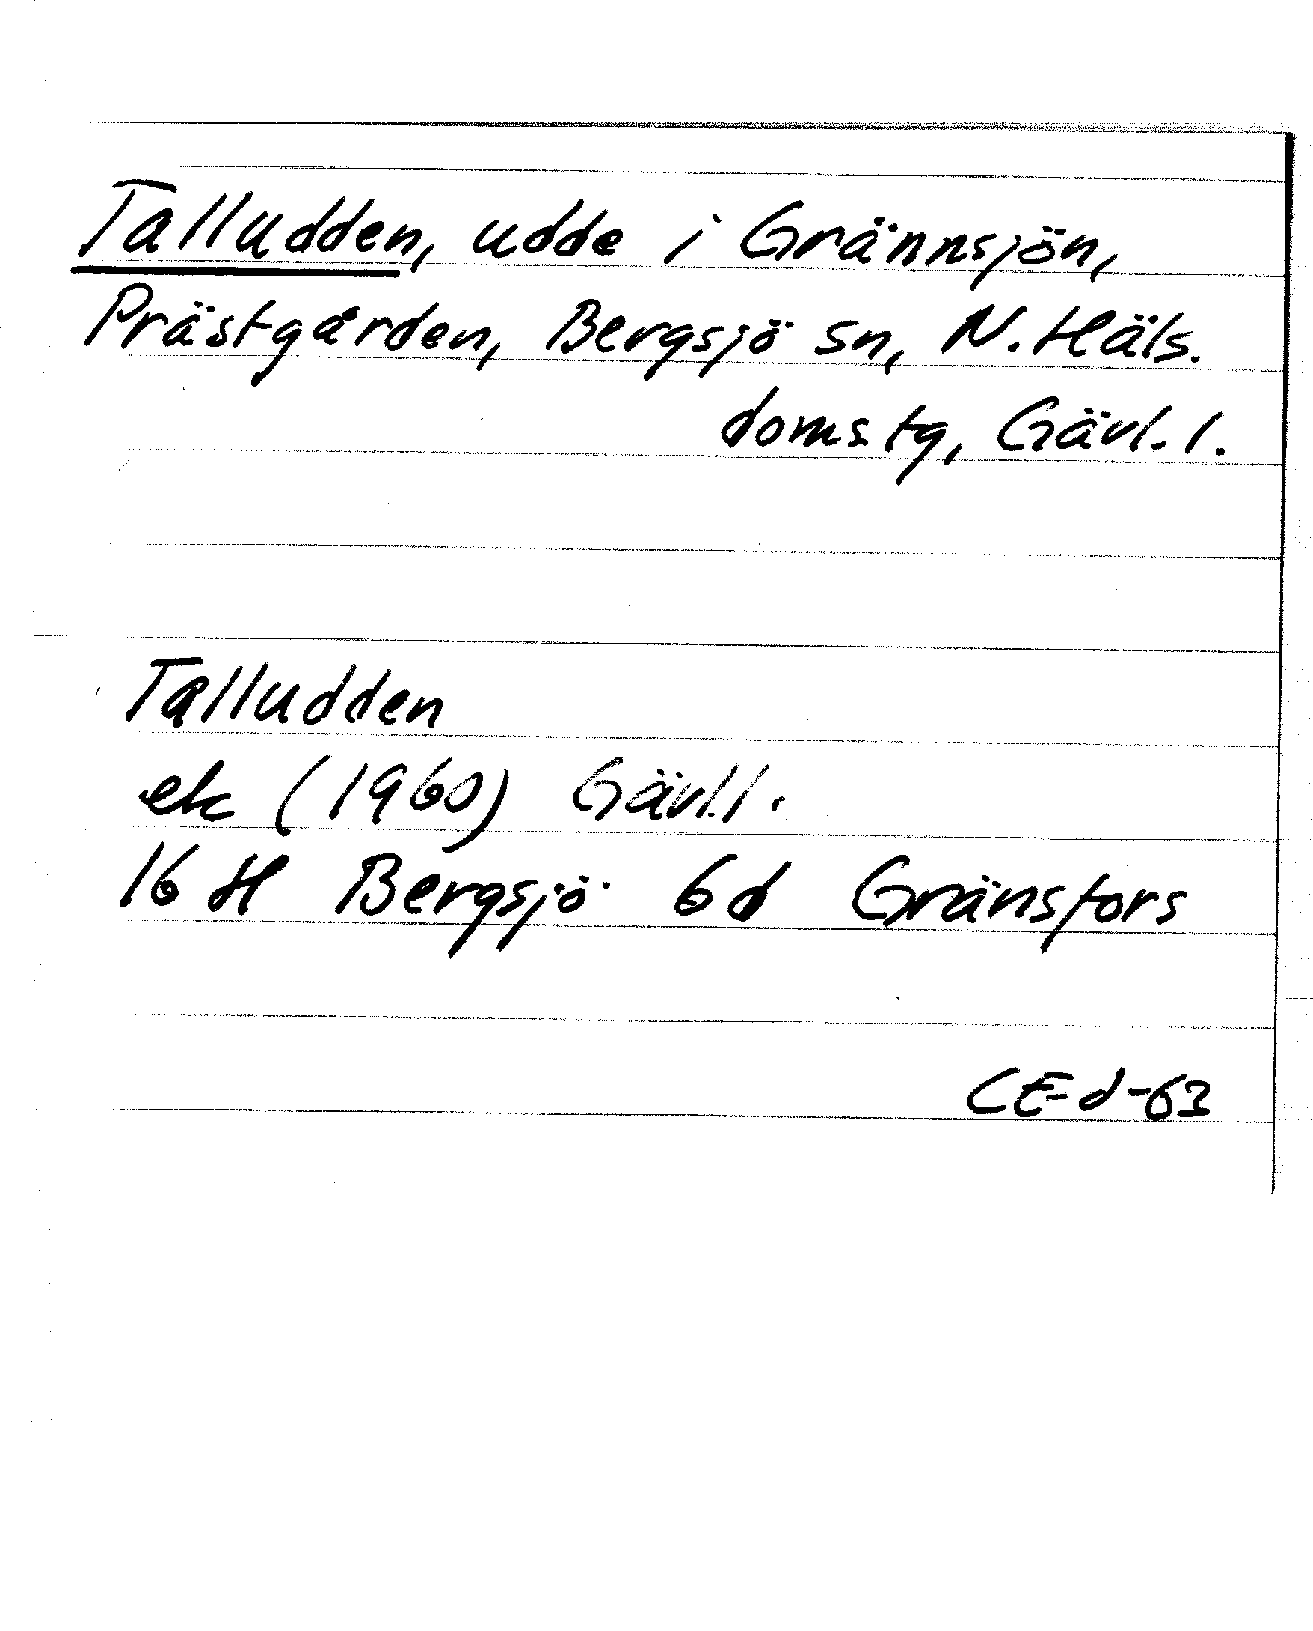 Talludden, udde i Grännsjön,
Prästgården, Bergsjö sn, N. Häls.
domstg, Gävl. l.
Talludden
ek (1960) Gävl.l.
16 H Bergsjö 6d Gränsfors
CEd-63